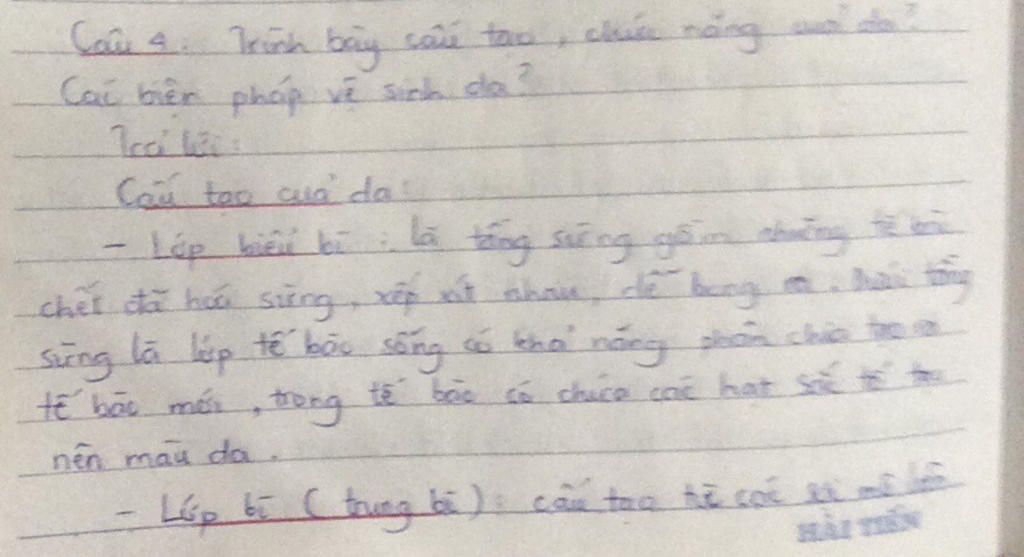 Câu 4: Trình bày cấu tạo, chức năng của da?
Các biện pháp vệ sinh da?
Trả lời:
Cấu tạo của da:
- Lớp biểu bì: là tầng sừng gồm những tế bào
chết đã hoá sừng, xếp sít nhau, dễ bong ra. Dưới tầng
sừng là lớp tế bào sống có khả năng phân chia tạo ra
tế bào mới, trong tế bào có chứa các hạt sắc tố tạo
nên màu da.
- Lớp bì (trung bì): cấu tạo từ các sợi mô liên
HẢI TIẾN